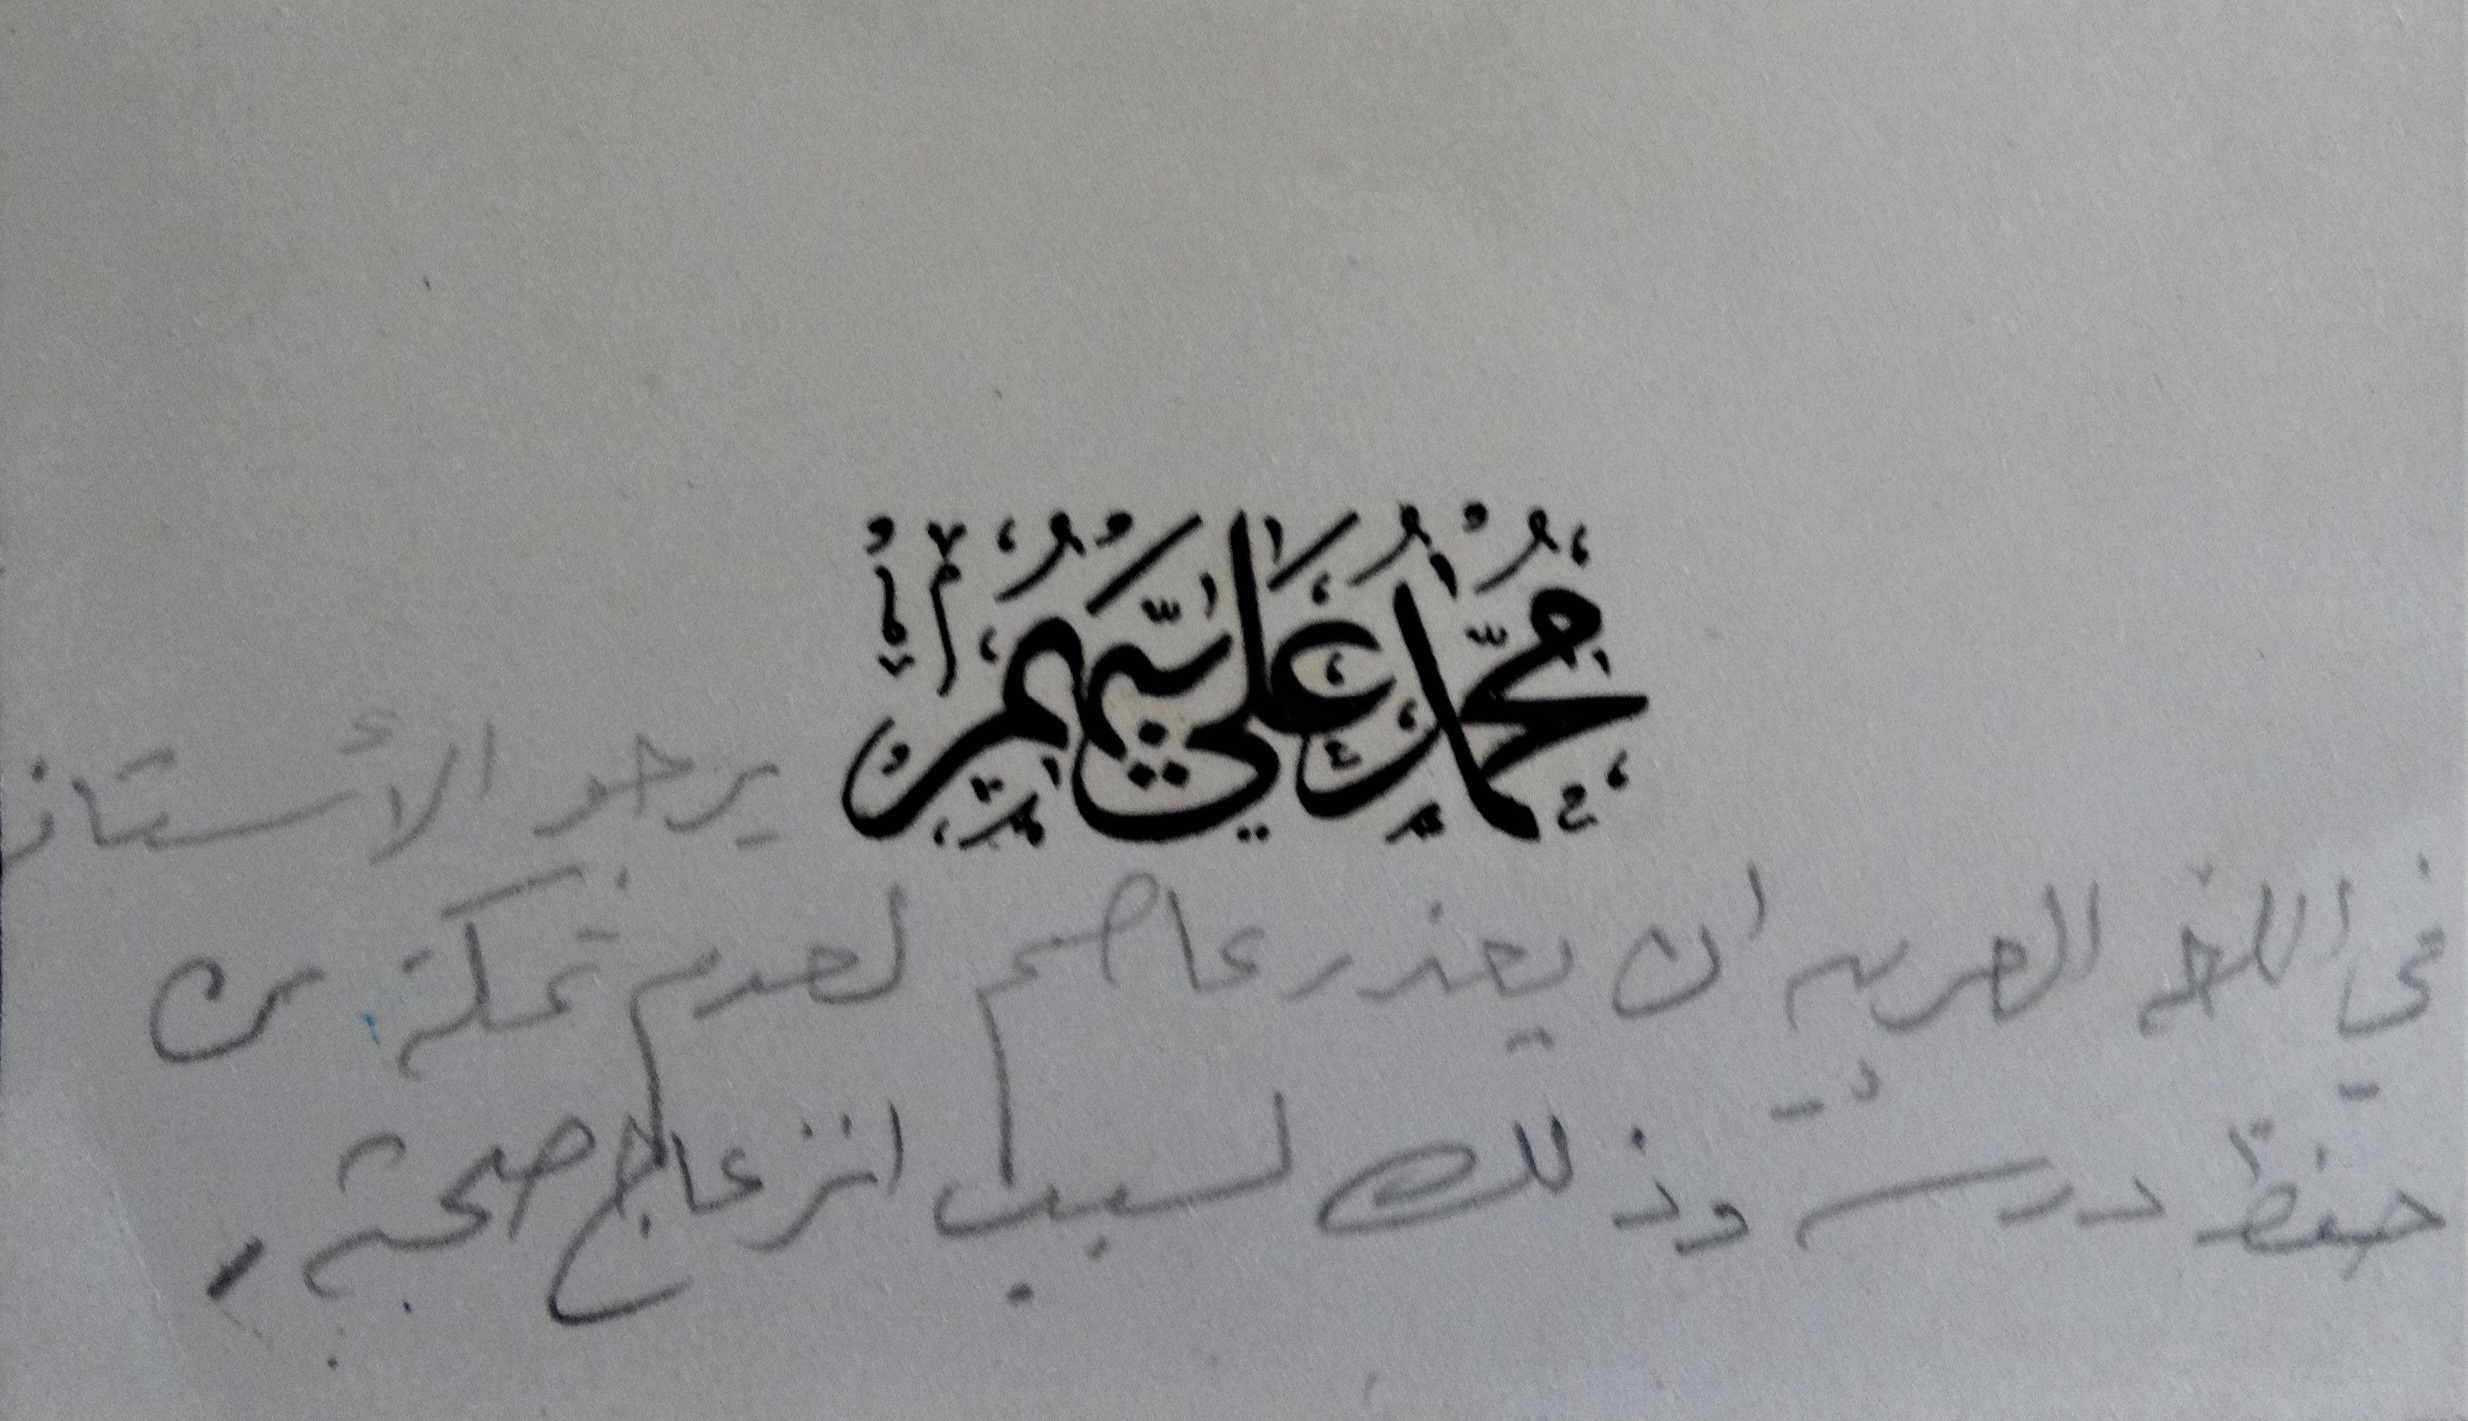 محمد علي يهم
يرجو الأستاذ
في اللغة العربية ان يعذر عاصم لعدم تمكنه من
حفظ درسه وذلك لسبب انزعاج صحته.